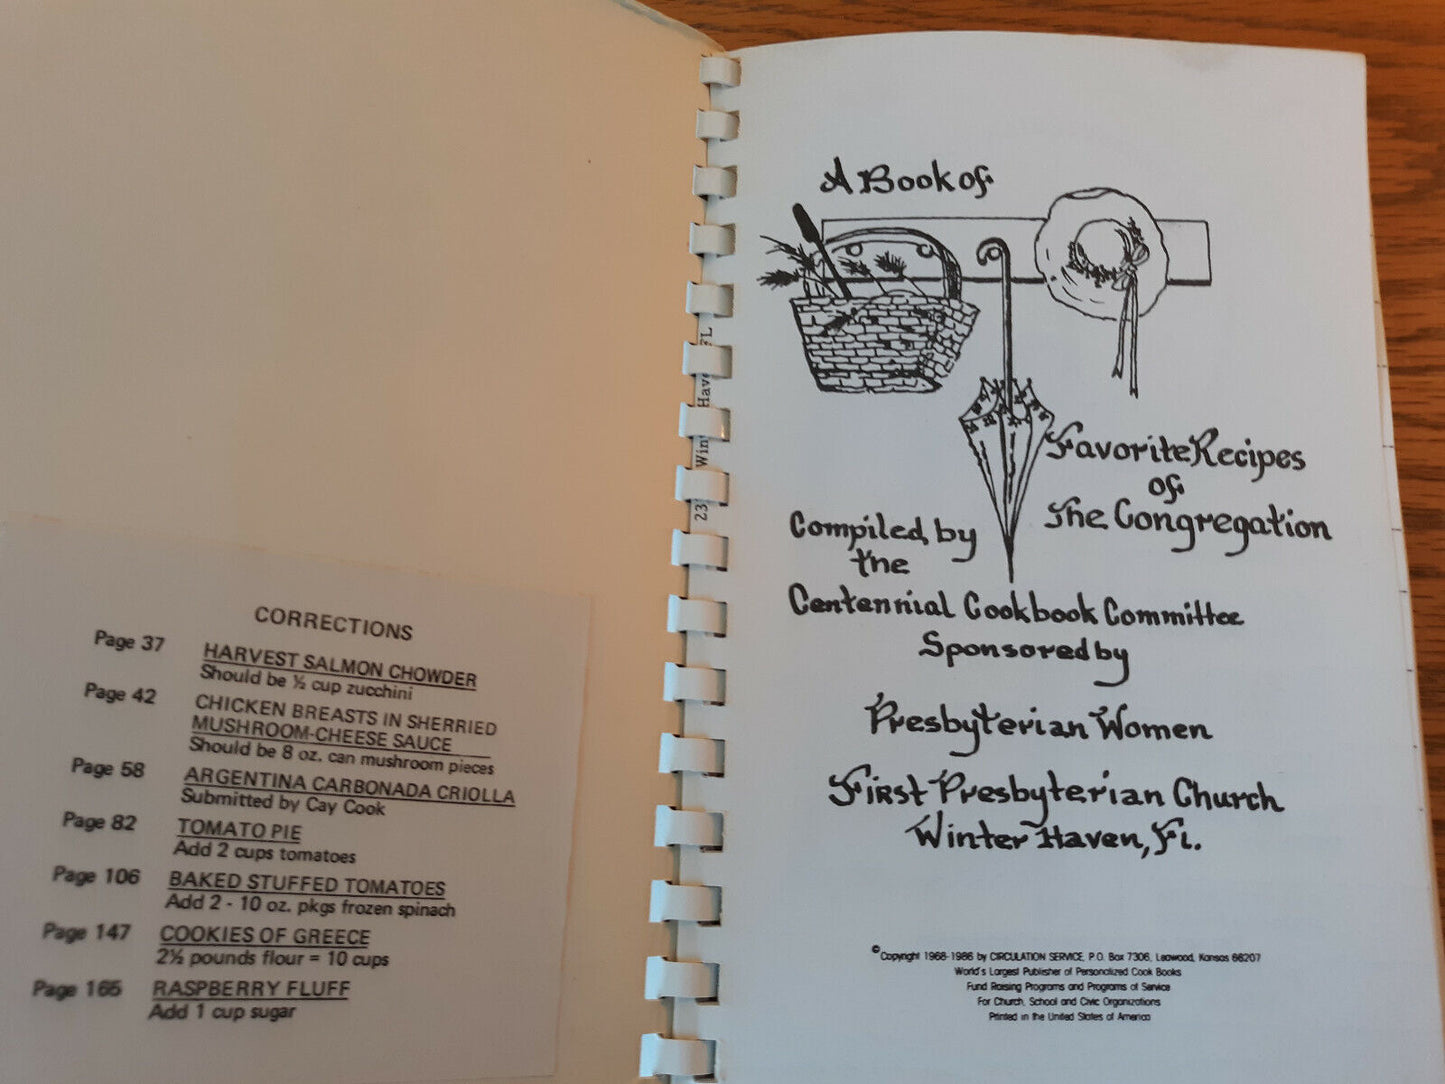 CORRECTIONS
Page 37 HARVEST SALMON CHOWDER
Should be ½ cup zucchini
Page 42 CHICKEN BREASTS IN SHERRIED
MUSHROOM-CHEESE SAUCE
Should be 8 oz. can mushroom pieces
Page 58 ARGENTINA CARBONADA CRIOLLA
Submitted by Cay Cook
Page 82 TOMATO PIE
Add 2 cups tomatoes
Page 106 BAKED STUFFED TOMATOES
Add 2 - 10 oz. pkgs frozen spinach
Page 147 COOKIES OF GREECE
2½ pounds flour = 10 cups
Page 165 RASPBERRY FLUFF
Add 1 cup sugar
FL
A Book of
Favorite Recipes
of
The Congregation
Compiled by
the
Centennial Cookbook Committee
Sponsored by
Presbyterian Women
First Presbyterian Church
Winter Haven, Fl.
© Copyright 1968-1986 by CIRCULATION SERVICE, P.O. Box 7306, Leawood, Kansas 66207
World's Largest Publisher of Personalized Cook Books
Fund Raising Programs and Programs of Service
For Church, School and Civic Organizations
Printed in the United States of America